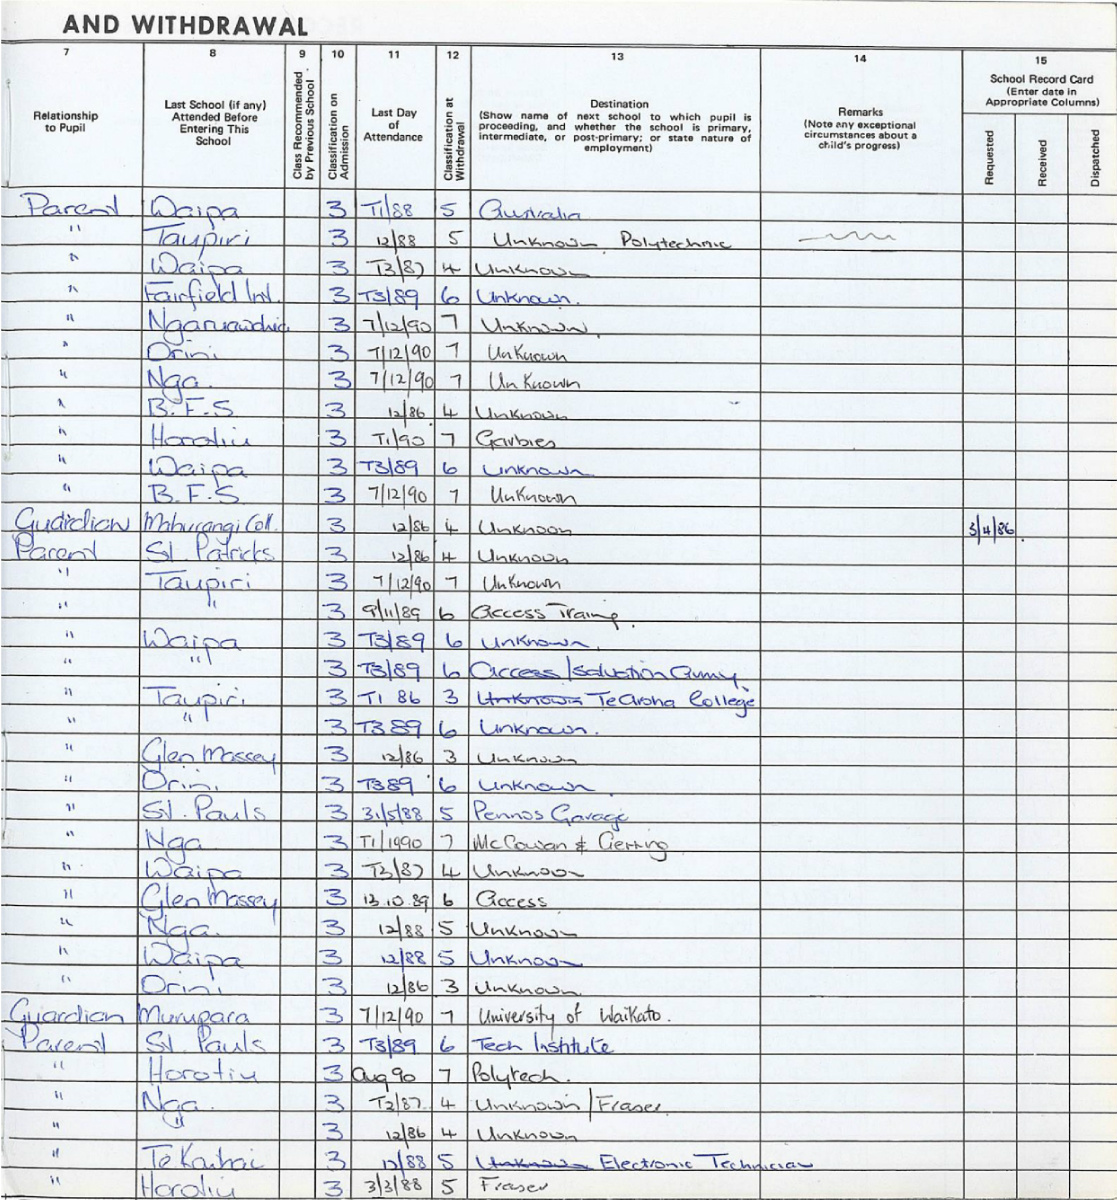 AND WITHDRAWAL
7 8 9 10 11 12 13 14 15
Relationship to Pupil
Last School (if any) Attended Before Entering This School
Class Recommended by Previous School
Classification on Admission
Last Day of Attendance
Classification at Withdrawal
Destination
(Show name of next school to which pupil is proceeding, and whether the school is primary, intermediate, or post-primary; or state nature of employment)
Remarks
(Note any exceptional circumstances about a child's progress)
School Record Card
(Enter date in Appropriate Columns)
Requested
Received
Dispatched
Parent Waipa 3 T1/88 5 Australia
" Taupiri 3 12/88 5 Unknown Polytechnic
" Waipa 3 T3/87 4 Unknown
" Fairfield Int. 3 T3/89 6 Unknown.
" Ngaruawahia 3 7/12/90 7 Unknown
" Orini 3 7/12/90 7 Unknown
" Nga. 3 7/12/90 7 Unknown
" B.F.S 3 12/86 4 Unknown
" Horotiu 3 T1/90 7 Garbies
" Waipa 3 T3/89 6 Unknown
" B.F.S 3 7/12/90 7 Unknown
Guardian Mahurangi Coll. 3 12/86 4 Unknown 3/4/86
Parent St. Patricks 3 12/86 4 Unknown
" Taupiri 3 7/12/90 7 Unknown
" " 3 9/11/89 6 Access Training.
" Waipa 3 T3/89 6 Unknown.
" " 3 T3/89 6 Access/Salvation Army.
" Taupiri 3 T1 86 3 Unknown Te Aroha College
" " 3 T3 89 6 Unknown.
" Glen Massey 3 12/86 3 Unknown
" Orini 3 T3 89 6 Unknown.
" St. Pauls 3 31/5/88 5 Pennos Garage
" Nga 3 T1/1990 7 McCowan & Gerring
" Waipa 3 T3/87 4 Unknown
" Glen Massey 3 13.10.89 6 Access
" Nga. 3 12/88 5 Unknown
" Waipa 3 12/88 5 Unknown
" Orini 3 12/86 3 Unknown
Guardian Murupara 3 7/12/90 7 University of Waikato.
Parent St. Pauls 3 T3/89 6 Tech Institute
" Horotiu 3 Aug 90 7 Polytech.
" Nga. 3 T2/87. 4 Unknown/Fraser.
" " 3 12/86 4 Unknown
" Te Kowhai 3 12/88 5 Unknown Electronic Technician
" Horotiu 3 3/3/88 5 Fraser